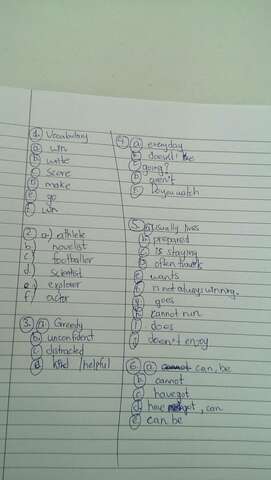 1. Vocabulary
a. win
b. write
c. score
d. make
e. go
f. win
2. a) athlete
b) novelist
c) footballer
d) scientist
e) explorer
f) actor
3. a) Greedy
b. unconfident
c. distracted
d. kind / helpful
4. a) everyday
b. doesn't
c) going?
d. aren't
e. Do you watch
5. a) usually lives
b. prepared
c. is staying
d. often travels
e. wants
f. is not always winning.
g. goes
h. cannot run
i. does
j. doesn't enjoy
6. a. can, be
b. cannot
c. have got
d. have got, can
e. can be